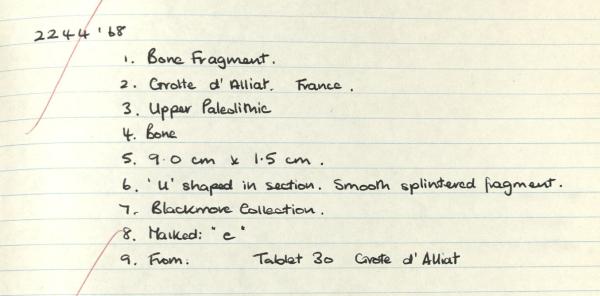 2244'68
1. Bone Fragment.
2. Grotte d'Alliat. France.
3. Upper Paleolithic
4. Bone
5. 9.0 cm x 1.5 cm.
6. 'U' shaped in section. Smooth splintered fragment.
7. Blackmore Collection.
8. Marked: "e"
9. From: Tablet 30 Grotte d'Alliat